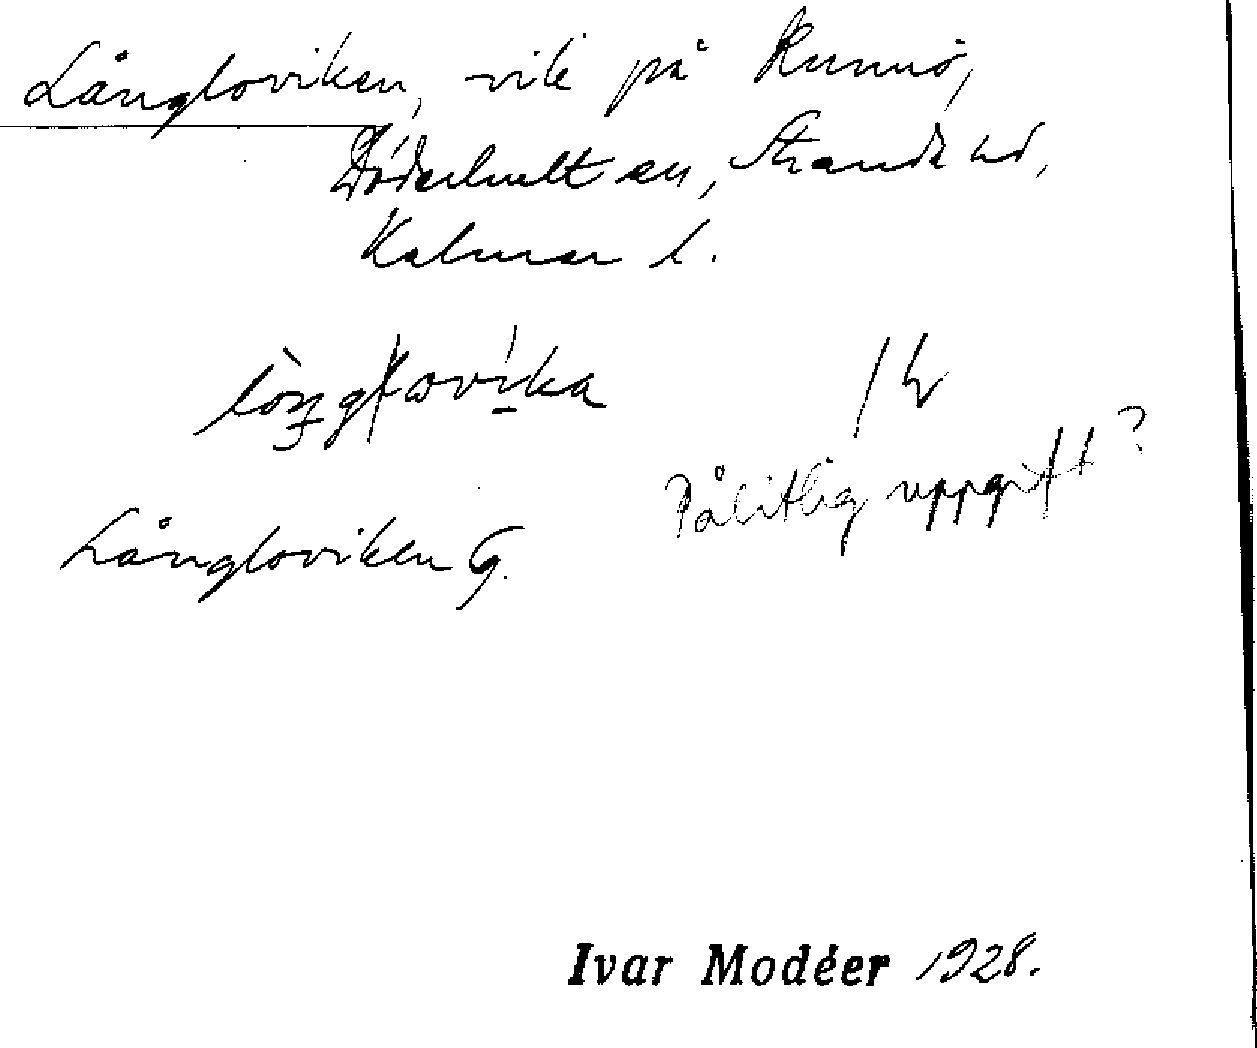 Långloviken, vik på Runnö,
Döderhult sn, Stranda hd,
Kalmar l.
Pålitlig uppgift?
Långloviken G.
Ivar Modéer 1928.